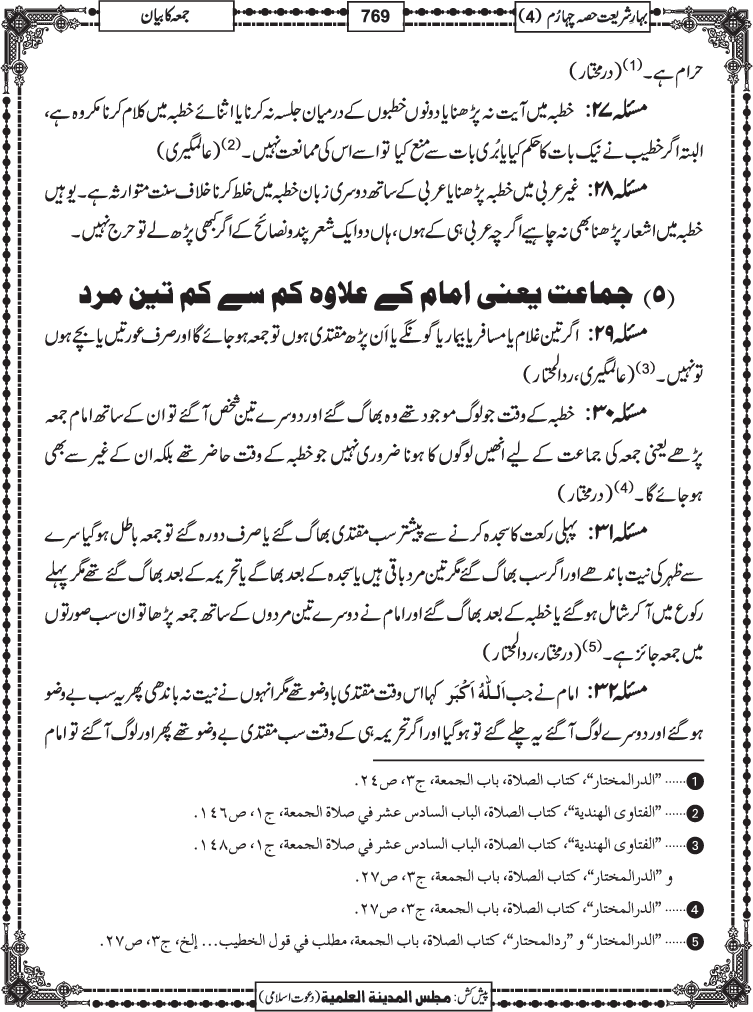 بہارِ شریعت حصہ چہارم (4)
769
جمعہ کا بیان
حرام ہے۔(1) (درمختار)
مسئلہ ۲۷: خطبہ میں آیت نہ پڑھنا یا دونوں خطبوں کے درمیان جلسہ نہ کرنا یا اثنائے خطبہ میں کلام کرنا مکروہ ہے،
البتہ اگر خطیب نے نیک بات کا حکم کیا یا بُری بات سے منع کیا تو اسے اس کی ممانعت نہیں۔(2) (عالمگیری)
مسئلہ ۲۸: غیر عربی میں خطبہ پڑھنا یا عربی کے ساتھ دوسری زبان خطبہ میں خلط کرنا خلاف سنت متوارثہ ہے۔ یوہیں
خطبہ میں اشعار پڑھنا بھی نہ چاہیے اگرچہ عربی ہی کے ہوں، ہاں دو ایک شعر پند و نصائح کے اگر کبھی پڑھ لے تو حرج نہیں۔
(۵) جماعت یعنی امام کے علاوہ کم سے کم تین مرد
مسئلہ ۲۹: اگر تین غلام یا مسافر یا بیمار یا گونگے یا اَن پڑھ مقتدی ہوں تو جمعہ ہو جائے گا اور صرف عورتیں یا بچے ہوں
تو نہیں۔(3) (عالمگیری، ردالمحتار)
مسئلہ ۳۰: خطبہ کے وقت جو لوگ موجود تھے وہ بھاگ گئے اور دوسرے تین شخص آ گئے تو ان کے ساتھ امام جمعہ
پڑھے یعنی جمعہ کی جماعت کے لیے انھیں لوگوں کا ہونا ضروری نہیں جو خطبہ کے وقت حاضر تھے بلکہ ان کے غیر سے بھی
ہو جائے گا۔(4) (درمختار)
مسئلہ ۳۱: پہلی رکعت کا سجدہ کرنے سے پیشتر سب مقتدی بھاگ گئے یا صرف دو رہ گئے تو جمعہ باطل ہوگیا سرے
سے ظہر کی نیت باندھے اور اگر سب بھاگ گئے مگر تین مرد باقی ہیں یا سجدہ کے بعد بھاگے یا تحریمہ کے بعد بھاگ گئے تھے مگر پہلے
رکوع میں آ کر شامل ہوگئے یا خطبہ کے بعد بھاگ گئے اور امام نے دوسرے تین مردوں کے ساتھ جمعہ پڑھا تو ان سب صورتوں
میں جمعہ جائز ہے۔(5) (درمختار، ردالمحتار)
مسئلہ ۳۲: امام نے جب اَللّٰهُ اَکْبَر کہا اس وقت مقتدی باوضو تھے مگر انہوں نے نیت نہ باندھی پھر یہ سب بے وضو
ہوگئے اور دوسرے لوگ آ گئے یہ چلے گئے تو ہوگیا اور اگر تحریمہ ہی کے وقت سب مقتدی بے وضو تھے پھر اور لوگ آ گئے تو امام
1...... "الدرالمختار"، كتاب الصلاة، باب الجمعة، ج٣، ص٢٤.
2...... "الفتاوى الهندية"، كتاب الصلاة، الباب السادس عشر في صلاة الجمعة، ج١، ص١٤٦.
3...... "الفتاوى الهندية"، كتاب الصلاة، الباب السادس عشر في صلاة الجمعة، ج١، ص١٤٨.
و "الدرالمختار"، كتاب الصلاة، باب الجمعة، ج٣، ص٢٧.
4...... "الدرالمختار"، كتاب الصلاة، باب الجمعة، ج٣، ص٢٧.
5...... "الدرالمختار" و "ردالمحتار"، كتاب الصلاة، باب الجمعة، مطلب في قول الخطيب... إلخ، ج٣، ص٢٧.
پیش کش: مجلس المدینة العلمیة (دعوت اسلامی)